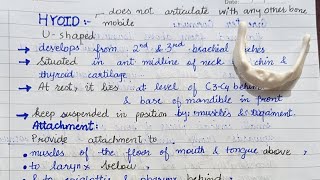 Date
HYOID:- - does not articulate with any other bone
mobile
U-shaped
→ develops from 2nd & 3rd brachial arches
→ Situated in ant midline of neck chin &
thyroid cartilage
→ At rest, it lies at level of C3-C4 behind
& base of mandible in front
→ keep suspended in position by: muscles & ligament.
Attachment:
Provide attachment to -
• muscles of the floor of mouth & tongue above,
• to larynx below,
• to epiglottis & pharynx behind,